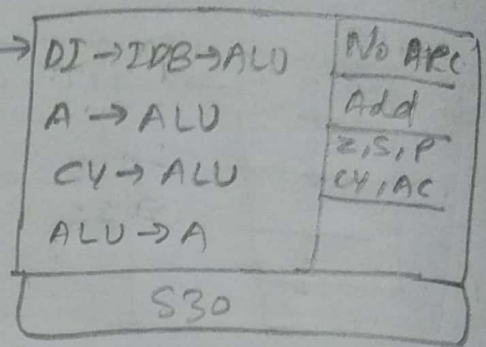 DI → IDB → ALU
A → ALU
CY → ALU
ALU → A
No ARC
Add
Z, S, P
CY, AC
S30